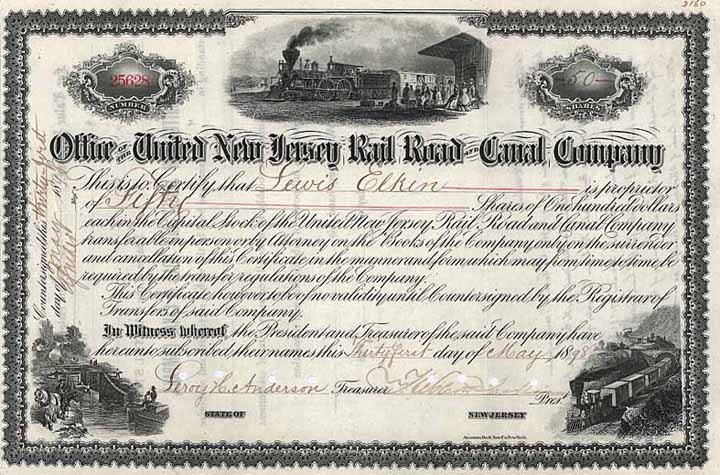 2160
25628
NUMBER
50
SHARES
Office of the United New Jersey Rail Road and Canal Company
This is to Certify that Lewis Elkin is proprietor
of Fifty Shares of One hundred dollars
each in the Capital Stock of the United New Jersey Rail Road and Canal Company
transferable in person or by Attorney on the Books of the Company only on the surrender
and cancellation of this Certificate in the manner and form which may from time to time, be
required by the transfer regulations of the Company.
This Certificate however to be of no validity until Countersigned by the Registrar of
Transfers of said Company.
In Witness whereof the President and Treasurer of the said Company have
hereunto subscribed their names this Thirty first day of May 1898
Leroy H. Anderson Treasurer Pres't
STATE OF NEW JERSEY
American Bank Note Co. New York.
Countersigned this thirty first
day of 189